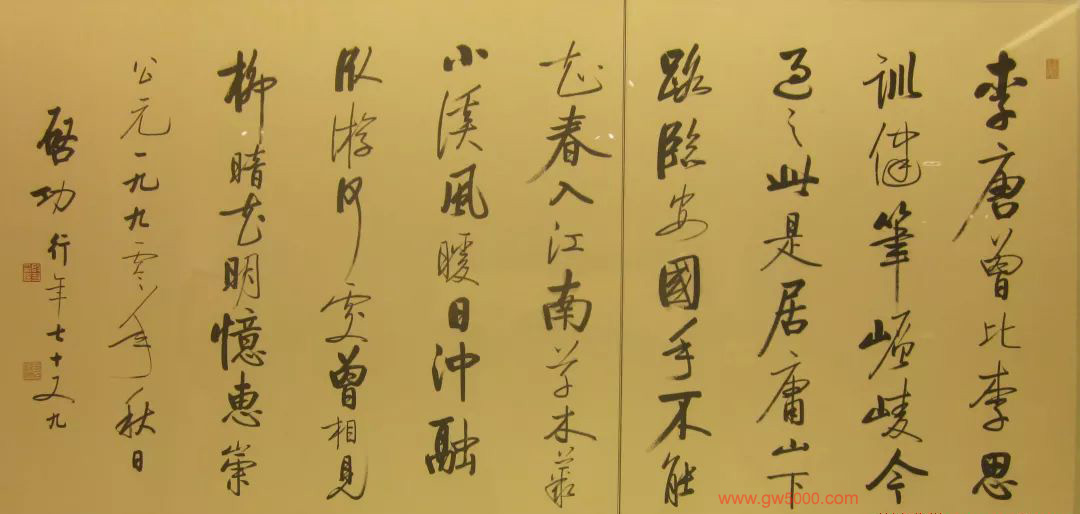 李唐曾比李思
訓健筆崚嶒今
過之此是居庸山下
路臨安國手不能
花春入江南草木蘇
小溪風暖日沖融
臥游何處曾相見
柳暗花明憶惠崇
公元一九九零年秋日
啓功行年七十又九
www.gw5000.com